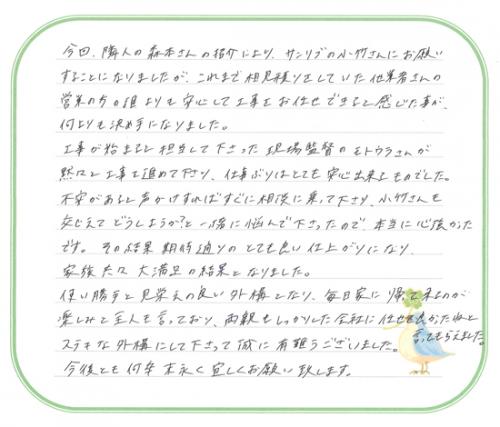 今回、隣人の森本さんの紹介により、サンリブの小竹さんにお願い
することになりましたが、これまで相見積りをしていた他業者さんの
営業の方の誰よりも安心して工事をお任せできると感じた事が、
何よりも決め手になりました。
工事が始まると担当して下さった現場監督のモトウラさんが
黙々と工事を進めて下さり、仕事ぶりはとても安心出来るものでした。
不安があると声かけすればすぐに相談に乗って下さり、小竹さんも
交じえてどうしようか?と一緒に悩んで下さったので、本当に心強かった
です。その結果期待通りのとても良い仕上がりになり、
家族共々大満足の結果となりました。
使い勝手と見栄えの良い外構となり、毎日家に帰って来るのが
楽しみと主人も言っており、両親もしっかりした会社に任せて良かったねと
言ってもらえました。
ステキな外構にして下さって誠に有難うございました。
今後とも何卒末永く宜しくお願い致します。